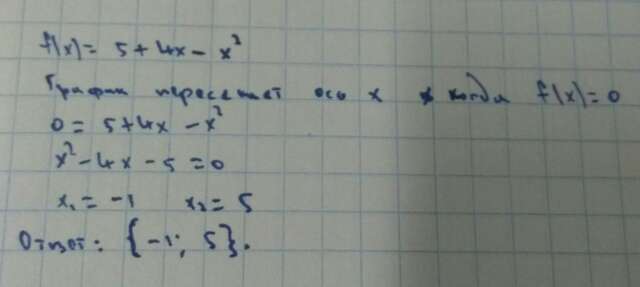 f(x) = 5 + 4x - x²
График пересекает ось x когда f(x) = 0
0 = 5 + 4x - x²
x² - 4x - 5 = 0
x₁ = -1 x₂ = 5
Ответ: {-1; 5}.